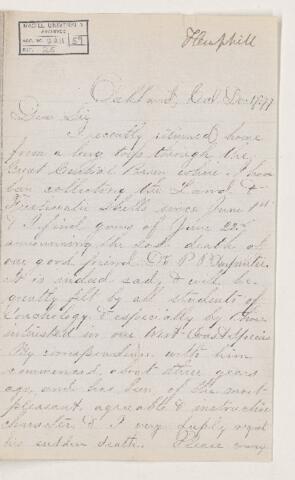 McGILL UNIVERSITY
ARCHIVES
ACC. NO. 2211 59
REF.
Hemphill
Oakland, Cal. Dec 1877
Dear Sir
I recently returned home
from a long trip through the
Great Central Basin where I have
been collecting the Land &
Freshwater Shells since June 1st
& I find yours of June 22nd
announcing the sad death of
our good friend Dr P. P. Carpenter.
It is indeed sad, & will be
greatly felt by all students of
Conchology & especially by those
interested in our West Coast Species
My correspondence with him
commenced about three years
ago, and has been of the most
pleasant, agreeable & instructive
character & I very deeply regret
his sudden death. Please